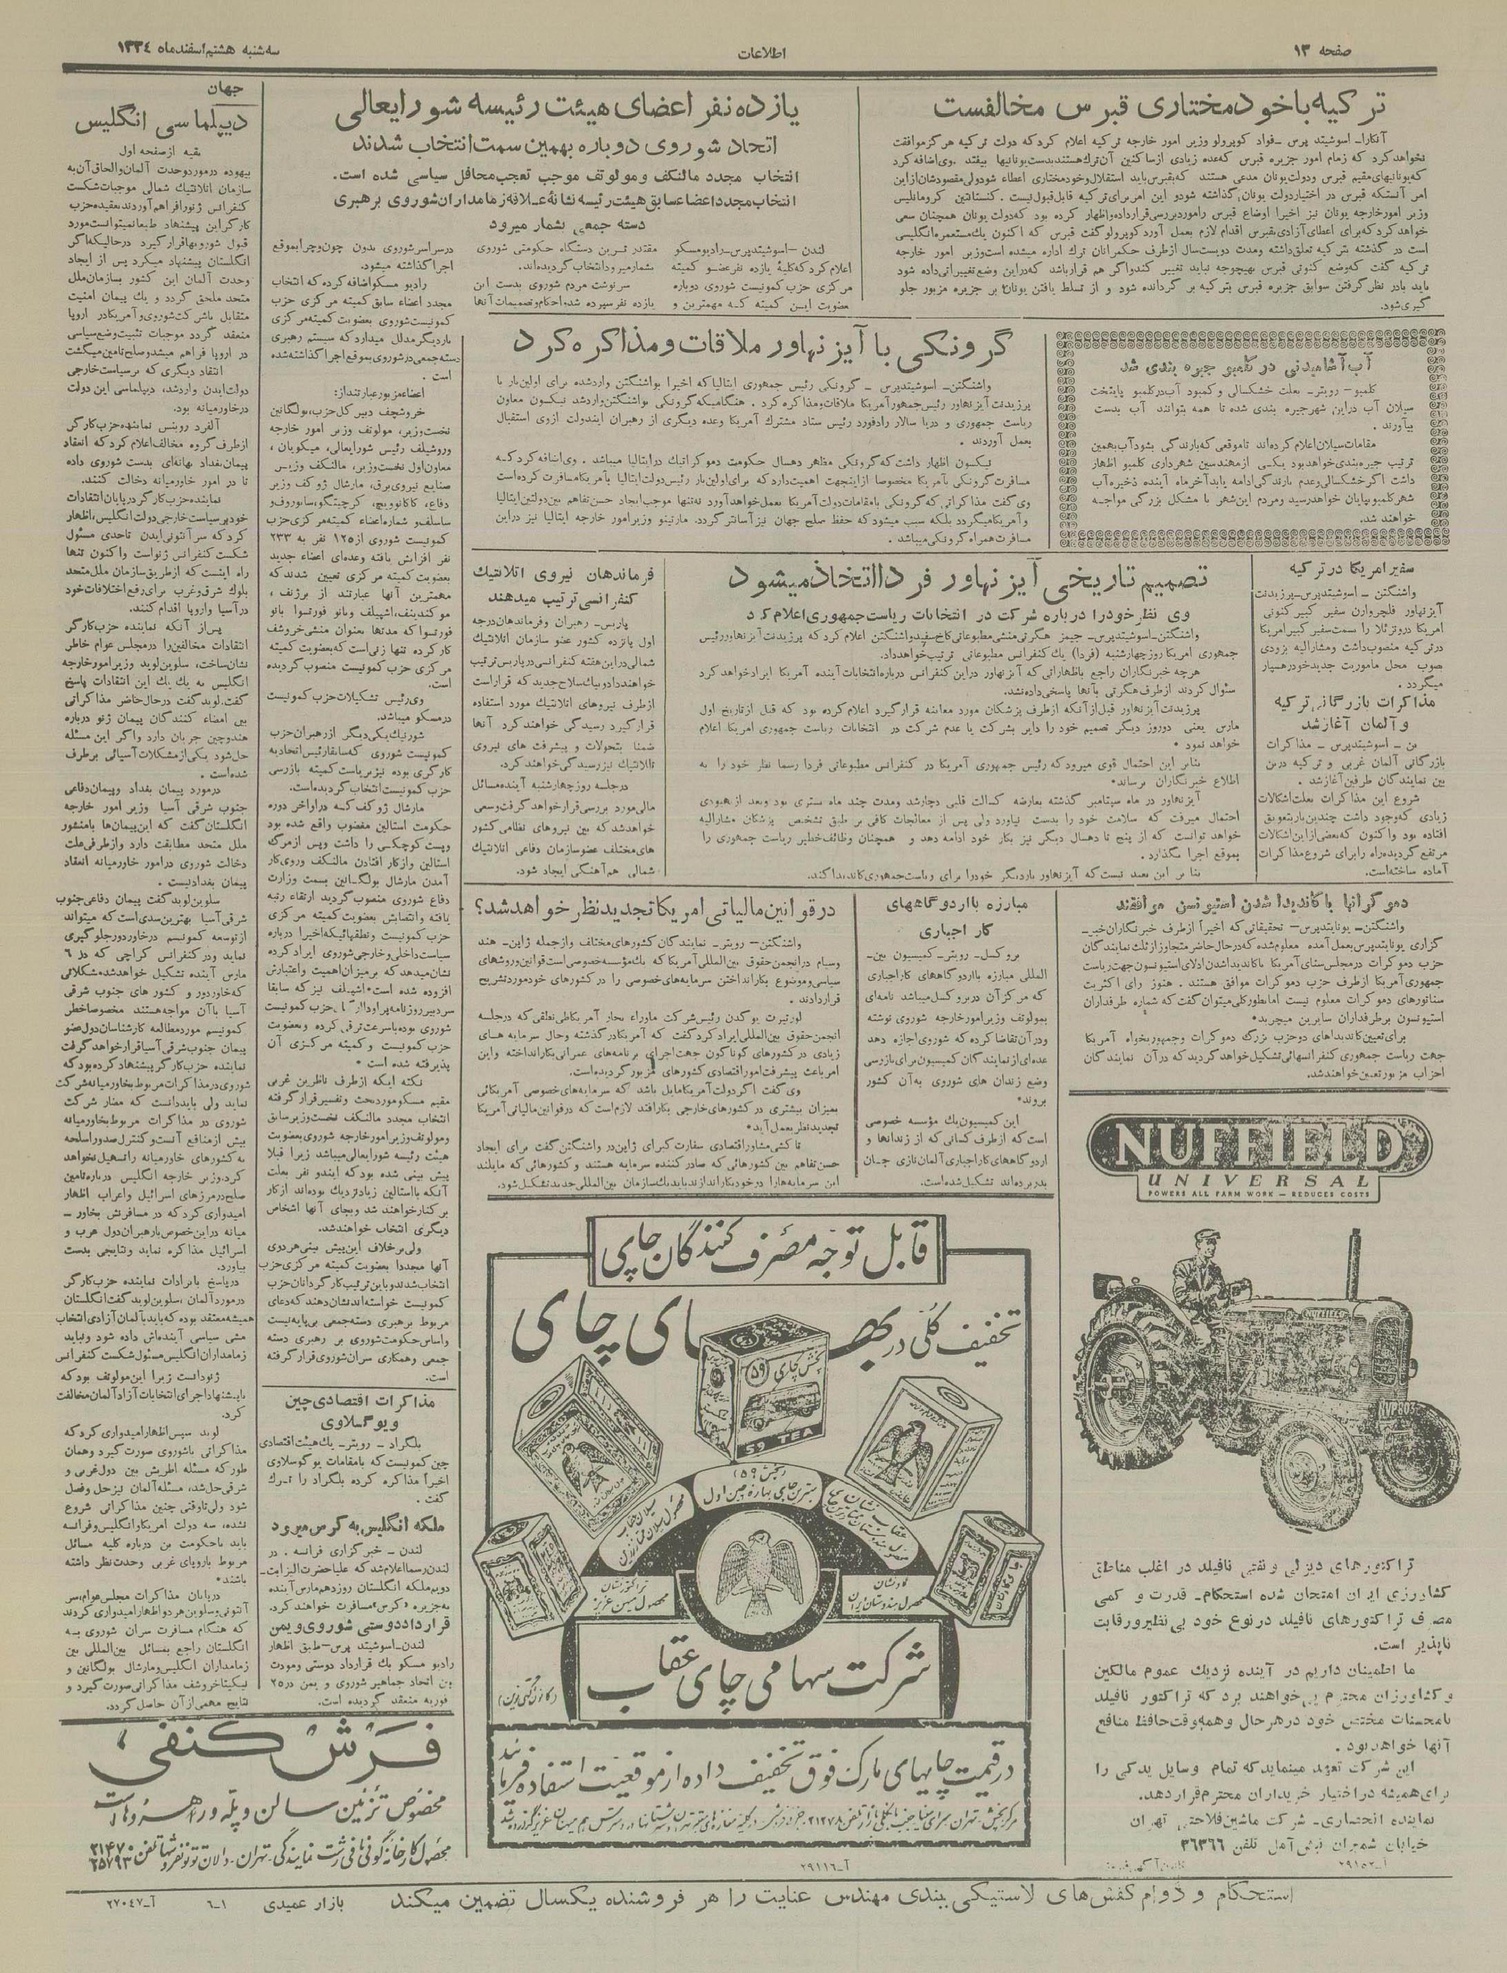 صفحه ۱۳
اطلاعات
سه‌شنبه هشتم اسفندماه ۱۳۳۴
ترکیه با خودمختاری قبرس مخالفست
آنکارا ـ اسوشیتدپرس ـ فواد کوپرولو وزیر امور خارجه ترکیه اعلام کرد که دولت ترکیه هرگز موافقت
نخواهد کرد که زمام امور جزیره قبرس که عده زیادی از ساکنین آن ترک هستند بدست یونانیها بیفتد . وی اضافه کرد
که یونانیهای مقیم قبرس و دولت یونان مدعی هستند که بقبرس باید استقلال و خودمختاری اعطاء شود ولی مقصودشان از این
امر آنستکه قبرس در اختیار دولت یونان گذاشته شود و این امر برای ترکیه قابل قبول نیست . کنستانتین کرومانلیس
وزیر امور خارجه یونان نیز اخیرا اوضاع قبرس را مورد بررسی قرار داده و اظهار کرده بود که دولت یونان همچنان سعی
خواهد کرد که برای اعطای آزادی بقبرس اقدام لازم بعمل آورد کوپرولو گفت قبرس که اکنون یک مستعمره انگلیسی
است در گذشته بترکیه تعلق داشته و مدت دویست سال از طرف حکمرانان ترک اداره میشده است وزیر امور خارجه
ترکیه گفت که وضع کنونی قبرس بهیچوجه نباید تغییر کند و اگر هم قرار باشد که در این وضع تغییراتی داده شود
باید با در نظر گرفتن سوابق جزیره قبرس بترکیه بر گردانده شود و از تسلط یافتن یونان بر جزیره مزبور جلو
گیری شود.
یازده نفر اعضای هیئت رئیسه شورایعالی
اتحاد شوروی دوباره بهمین سمت انتخاب شدند
انتخاب مجدد مالنکف و مولوتف موجب تعجب محافل سیاسی شده است .
انتخاب مجدد اعضاء سابق هیئت رئیسه نشانهٔ علاقه زمامداران شوروی برهبری
دسته جمعی بشمار میرود
لندن ـ اسوشیتدپرس ـ رادیو مسکو
اعلام کرد که کلیهٔ یازده نفر عضو کمیته
مرکزی حزب کمونیست شوروی دوباره
بعضویت این کمیته که مهمترین و
مقتدرترین دستگاه حکومتی شوروی
بشمار میرود انتخاب گردیده‌اند.
سرنوشت مردم شوروی بدست این
یازده نفر سپرده شده احکام و تصمیمات آنها
در سراسر شوروی بدون چون و چرا بموقع
اجرا گذاشته میشود.
رادیو مسکو اضافه کرده که انتخاب
مجدد اعضاء سابق کمیته مرکزی حزب
کمونیست شوروی بعضویت کمیته مرکزی
بار دیگر مدلل میدارد که سیستم رهبری
دسته جمعی در شوروی بموقع اجرا گذاشته شده
است .
اعضاء مزبور عبارتند از:
خروشچف دبیر کل حزب، بولگانین
نخست وزیر، مولوتف وزیر امور خارجه
وروشیلف رئیس شورایعالی، میکویان ،
معاون اول نخست وزیر، مالنکف وزیر
صنایع نیروی برق، مارشال ژوکف وزیر
نفر افزایش یافته و عده‌ای اعضاء جدید
بعضویت کمیته مرکزی تعیین شدند که
فورتسوا که مدتها بعنوان منشی خروشف
کار کرده تنها زنی است که بعضویت کمیته
مرکزی حزب کمونیست منصوب گردیده
است.
وی رئیس تشکیلات حزب کمونیست
در مسکو میباشد.
مارشال ژوکف که در اواخر دوره
حکومت استالین مغضوب واقع شده بود
و پست کوچکی را داشت و پس از مرگ
استالین و از کار افتادن مالنکف و روی کار
آمدن مارشال بولگانین بسمت وزارت
دفاع شوروی منصوب گردید ارتقاء رتبه
یافته و انتخابش بعضویت کمیته مرکزی
پذیرفته شده است *
نکته اینکه از طرف ناظرین غربی
مقیم مسکو مورد بحث و تفسیر قرار گرفته
انتخاب مجدد مالنکف نخست وزیر سابق
و مولوتف وزیر امور خارجه شوروی بعضویت
هیئت رئیسه شورایعالی میباشد زیرا قبلا
پیش بینی شده بود که ایندو نفر بعلت
آنکه با استالین زیاد نزدیک بوده‌اند از کار
بر کنار خواهند شد و بجای آنها اشخاص
دیگری انتخاب خواهند شد.
ولی بر خلاف این پیش بینی هر دوی
آنها مجددا بعضویت کمیته مرکزی حزب
انتخاب شدند و باین ترتیب کارگردانان حزب
کمونیست خواسته‌اند نشان دهند که دعای
مربوط برهبری دسته جمعی بی پایه نیست
و اساس حکومت شوروی بر رهبری دسته
جمعی و همکاری سران شوروی قرار گرفته
است.
مذاکرات اقتصادی چین
و یوگسلاوی
بلگراد ـ رویتر ـ یک هیئت اقتصادی
چین کمونیست که با مقامات یوگوسلاوی
اخیرا مذاکره کرده بلگراد را ترک
گفت .
ملکه انگلیس به کرس میرود
لندن ـ خبرگزاری فرانسه . در
لندن رسما اعلام شد که علیاحضرت الیزابت
دوم ملکه انگلستان روز دهم مارس آینده
به جزیره «کرس» مسافرت خواهند کرد.
قرارداد دوستی شوروی و یمن
لندن ـ اسوشیتد پرس ـ طبق اظهار
رادیو مسکو یک قرارداد دوستی و مودت
بین اتحاد جماهیر شوروی و یمن در ۲۵
فوریه منعقد گردیده است.
جهان
دیپلماسی انگلیس
بقیه از صفحه اول
بیهوده در مورد وحدت آلمان و الحاق آن به
سازمان آتلانتیک شمالی موجبات شکست
کنفرانس ژنو را فراهم آوردند بعقیده حزب
کارگر این پیشنهاد طبعا نمیتوانست مورد
قبول شوروبها قرار گیرد در حالیکه اگر
انگلستان پیشنهاد میکرد پس از ایجاد
وحدت آلمان این کشور بسازمان ملل
متحد ملحق گردد و یک پیمان امنیت
متقابل با شرکت شوروی و آمریکا در اروپا
منعقد گردد موجبات تثبیت وضع سیاسی
در اروپا فراهم میشد و صلح تامین میگشت
انتقاد دیگری که بر سیاست خارجی
دولت ایدن وارد شد، دیپلماسی این دولت
در خاورمیانه بود.
آلفرد روبنس نماینده حزب کارگر
از طرف گروه مخالف اعلام کرد که انعقاد
پیمان بغداد بهانه‌ای بدست شوروی داده
تا در امور خاورمیانه دخالت کنند.
نماینده حزب کارگر در پایان انتقادات
خود بر سیاست خارجی دولت انگلیس، اظهار
کرد که سر آنتونی ایدن تاحدی مسئول
شکست کنفرانس ژنو است و اکنون تنها
راه اینست که از طریق سازمان ملل متحد
بلوک شرق و غرب برای رفع اختلافات خود
در آسیا و اروپا اقدام کنند.
پس از آنکه نماینده حزب کارگر
انتقادات مخالفین را در مجلس عوام خاطر
نشان ساخت، سلوین لوید وزیر امور خارجه
انگلیس به یک یک این انتقادات پاسخ
گفت. لوید گفت در حال حاضر مذاکراتی
بین امضاء کنندگان پیمان ژنو درباره
هندوچین جریان دارد و اگر این مسئله
حل شود یکی از مشکلات آسیائی برطرف
شده است .
در مورد پیمان بغداد و پیمان دفاعی
جنوب شرقی آسیا وزیر امور خارجه
انگلستان گفت که این پیمان‌ها با منشور
ملل متحد مطابقت دارد و از طرفی علت
دخالت شوروی در امور خاورمیانه انعقاد
پیمان بغداد نیست .
سلوین لوید گفت پیمان دفاعی جنوب
شرقی آسیا بهترین سدی است که میتواند
از توسعه کمونیسم در خاور دور جلوگیری
نماید و در کنفرانس کراچی که در ۶
مارس آینده تشکیل خواهد شد مشکلاتی
که خاور دور و کشور های جنوب شرقی
آسیا با آن مواجه هستند مخصوصا خطر
کمونیسم مورد مطالعه کارشناسان دول عضو
پیمان جنوب شرقی آسیا قرار خواهد گرفت
نماینده حزب کارگر پیشنهاد کرده بود که
شوروی در مذاکرات مربوط بخاورمیانه شرکت
نماید ولی باید دانست که مضار شرکت
شوروی در مذاکرات مربوط بخاورمیانه
بیش از منافع آنست و کنترل صدور اسلحه
به کشورهای خاورمیانه را تسهیل نخواهد
کرد. وزیر خارجه انگلیس درباره تامین
صلح در مرزهای اسرائیل و اعراب اظهار
امیدواری کرد که در مسافرتش بخاور ـ
میانه در این خصوص با رهبران دول عرب و
اسرائیل مذاکره نماید و نتایجی بدست
بیاورد.
در پاسخ بایرادات نماینده حزب کارگر
در مورد آلمان ، سلوین لوید گفت انگلستان
همیشه معتقد بوده که باید بآلمان آزادی انتخاب
مشی سیاسی آینده‌اش داده شود و نباید
زمامداران انگلیس مسئول شکست کنفرانس
ژنو دانست زیرا این مولوتف بود که
با پیشنهاد اجرای انتخابات آزاد آلمان مخالفت
کرد.
لوید سپس اظهار امیدواری کرد که
مذاکراتی با شوروی صورت گیرد و همان
طور که مسئله اطریش بین دول غربی و
شرقی حل شد، مسئله آلمان نیز حل و فصل
شود ولی تا وقتی چنین مذاکراتی شروع
نشده، سه دولت آمریکا و انگلیس و فرانسه
باید با حکومت بن درباره کلیه مسائل
مربوط باروپای غربی وحدت نظر داشته
باشند *
در پایان مذاکرات مجلس عوام، سر
آنتونی و سلوین هر دو اظهار امیدواری کردند
که هنگام مسافرت سران شوروی به
انگلستان راجع بمسائل بین المللی بین
زمامداران انگلیس و مارشال بولگانین و
نیکیتا خروشف مذاکراتی صورت گیرد و
نتایج مهمی از آن حاصل گردد.
گرونکی با آیزنهاور ملاقات و مذاکره کرد
واشنگتن ـ اسوشیتدپرس ـ گرونکی رئیس جمهوری ایتالیا که اخیرا بواشنگتن وارد شده برای اولین بار با
پرزیدنت آیزنهاور رئیس جمهور آمریکا ملاقات و مذاکره کرد . هنگامیکه گرونکی بواشنگتن وارد شد نیکسون معاون
ریاست جمهوری و دریا سالار رادفورد رئیس ستاد مشترک آمریکا و عده دیگری از رهبران ایندولت از وی استقبال
بعمل آوردند .
نیکسون اظهار داشت که گرونکی مظاهر دهسال حکومت دموکراتیک در ایتالیا میباشد . وی اضافه کرد که
مسافرت گرونکی بآمریکا مخصوصا از اینجهت اهمیت دارد که برای اولین بار رئیس دولت ایتالیا بآمریکا مسافرت کرده است
وی گفت مذاکراتی که گرونکی با مقامات دولت آمریکا بعمل خواهد آورد نه تنها موجب ایجاد حسن تفاهم بین دولتین ایتالیا
و آمریکا میگردد بلکه سبب میشود که حفظ صلح جهان نیز آسانتر گردد. مارتینو وزیر امور خارجه ایتالیا نیز در این
مسافرت همراه گرونکی میباشد .
آب آشامیدنی در کلمبو جیره بندی شد
کلمبو ـ رویتر ـ بعلت خشکسالی و کمبود آب در کلمبو پایتخت
سیلان آب در این شهر جیره بندی شده تا همه بتوانند آب بدست
بیآورند .
مقامات سیلان اعلام کرده‌اند تا موقعی که بارندگی بشود آب بهمین
ترتیب جیره‌بندی خواهد بود یکی از مهندسین شهرداری کلمبو اظهار
داشت اگر خشکسالی و عدم بارندگی ادامه یابد آخر ماه آینده ذخیره آب
شهر کلمبو بپایان خواهد رسید و مردم این شهر با مشکل بزرگی مواجه
خواهند شد.
تصمیم تاریخی آیزنهاور فردا اتخاذ میشود
وی نظر خود را درباره شرکت در انتخابات ریاست جمهوری اعلام کرد
واشنگتن ـ اسوشیتدپرس ـ جیمز هگرتی منشی مطبوعاتی کاخ سفید واشنگتن اعلام کرد که پرزیدنت آیزنهاور رئیس
جمهوری امریکا روز چهارشنبه (فردا) یک کنفرانس مطبوعاتی ترتیب خواهد داد.
هرچه خبرنگاران راجع باظهاراتی که آیزنهاور در این کنفرانس درباره انتخابات آینده آمریکا ایراد خواهد کرد
سئوال کردند از طرف هگرتی بآنها پاسخی داده نشد.
پرزیدنت آیزنهاور قبل از آنکه از طرف پزشکان مورد معاینه قرار گیرد اعلام کرده بود که قبل از تاریخ اول
مارس یعنی دو روز دیگر تصمیم خود را دایر بشرکت یا عدم شرکت در انتخابات ریاست جمهوری امریکا اعلام
خواهد نمود *
بنابر این احتمال قوی میرود که رئیس جمهوری آمریکا در کنفرانس مطبوعاتی فردا رسما نظر خود را به
اطلاع خبرنگاران برساند*
آیزنهاور در ماه سپتامبر گذشته بعارضه کسالت قلبی دچار شد و مدت چند ماه بستری بود و بعد از بهبودی
احتمال میرفت که سلامت خود را بدست نیاورد ولی پس از معالجات کافی بر طبق تشخیص پزشکان مشارالیه
خواهد توانست که از پنج تا دهسال دیگر نیز بکار خود ادامه دهد و همچنان وظائف خطیر ریاست جمهوری را
بموقع اجرا بگذارد .
بنا بر این بعید نیست که آیزنهاور بار دیگر خود را برای ریاست جمهوری کاندیدا کند.
فرماندهان نیروی اتلانتیک
کنفرانسی ترتیب میدهند
پاریس ـ رهبران و فرماندهان درجه
اول پانزده کشور عضو سازمان آتلانتیک
شمالی در این هفته کنفرانسی در پاریس ترتیب
خواهند داد و یک سلاح جدید که قرار است
از طرف نیروهای آتلانتیک مورد استفاده
قرار گیرد رسیدگی خواهند کرد . آنها
ضمنا بتحولات و پیشرفت های نیروی
آتلانتیک نیز رسیدگی خواهند کرد.
در جلسه روز چهارشنبه آینده مسائل
مالی مورد بررسی قرار خواهد گرفت و سعی
خواهد شد که بین نیروهای نظامی کشور
های مختلف عضو سازمان دفاعی آتلانتیک
شمالی هم آهنگی ایجاد شود.
سفیر امریکا در ترکیه
واشنگتن ـ اسوشیتدپرس ـ پرزیدنت
آیزنهاور فلچر وارن سفیر کبیر کنونی
امریکا در ونزئلا را بسمت سفیر کبیر امریکا
در ترکیه منصوب داشت و مشارالیه بزودی
بصوب محل ماموریت جدید خود رهسپار
میگردد .
مذاکرات بازرگانی ترکیه
و آلمان آغاز شد
بن ـ اسوشیتدپرس ـ مذاکرات
بازرگانی آلمان غربی و ترکیه در بن
بین نمایندگان طرفین آغاز شد .
شروع این مذاکرات بعلت اشکالات
زیادی که وجود داشت چندین بار بتعویق
افتاده بود و اکنون که بعضی از این اشکالات
مرتفع گردیده راه را برای شروع مذاکرات
آماده ساخته است.
دموکراتها با کاندیدا شدن استیونسن موافقند
واشنگتن ـ یونایتدپرس ـ تحقیقاتی که اخیرا از طرف خبرنگاران خبر ـ
گزاری یونایتدپرس بعمل آمده معلوم شده که در حال حاضر متجاوز از ثلث نمایندگان
حزب دموکرات در مجلس سنای آمریکا با کاندیدا شدن ادلای استیونسون جهت ریاست
جمهوری آمریکا از طرف حزب دموکرات موافق هستند . هنوز رای اکثریت
سناتورهای دموکرات معلوم نیست اما بطور کلی میتوان گفت که شماره طرفداران
استیونسون بر طرفداران سایرین میچربد*
برای تعیین کاندیداهای دو حزب بزرگ دموکرات و جمهوریخواه آمریکا
جهت ریاست جمهوری کنفرانسهائی تشکیل خواهد گردید که در آن نمایندگان
احزاب مزبور تعیین خواهند شد.
مبارزه با اردوگاههای
کار اجباری
بروکسل ـ رویتر ـ کمیسیون بین ـ
المللی مبارزه با اردوگاههای کار اجباری
که مرکز آن در بروکسل میباشد نامه‌ای
بمولوتف وزیر امور خارجه شوروی نوشته
و در آن تقاضا کرده که شوروی اجازه دهد
عده‌ای از نمایندگان کمیسیون برای بازرسی
وضع زندان های شوروی به آن کشور
بروند*
این کمیسیون یک مؤسسه خصوصی
است که از طرف کسانی که از زندانها و
اردوگاههای کار اجباری آلمان نازی جان
بدر برده‌اند تشکیل شده است.
در قوانین مالیاتی امریکا تجدید نظر خواهد شد؟
واشنگتن ـ رویتر ـ نمایندگان کشورهای مختلف و از جمله ژاپن ـ هند
و سیام در انجمن حقوق بین‌المللی آمریکا که یک مؤسسه خصوصی است قوانین و روشهای
سیاسی و موضوع بکار انداختن سرمایه‌های خصوصی را در کشورهای خود مورد تشریح
قرار دادند .
انجمن حقوق بین‌المللی ایراد کرد گفت که آمریکا در گذشته و حال سرمایه های
زیادی در کشورهای گوناگون جهت اجرای برنامه‌های عمرانی بکار انداخته و این
امر باعث پیشرفت امور اقتصادی کشورهای مزبور گردیده است.
وی گفت اگر دولت آمریکا مایل باشد که سرمایه‌های خصوصی آمریکائی
بمیزان بیشتری در کشورهای خارجی بکار افتد لازم است که در قوانین مالیاتی آمریکا
تجدید نظر بعمل آید*
تاکشی مشاور اقتصادی سفارت کبرای ژاپن در واشنگتن گفت برای ایجاد
حسن تفاهم بین کشورهائی که صادر کننده سرمایه هستند و کشورهائی که مایلند
این سرمایه‌ها را در خود بکار اندازند باید یک سازمان بین‌المللی جدید تشکیل شود.
NUFFIELD
UNIVERSAL
POWERS ALL FARM WORK — REDUCES COSTS
تراکتورهای دیزلی و نفتی نافیلد در اغلب مناطق
کشاورزی ایران امتحان شده استحکام ـ قدرت و کمی
مصرف تراکتورهای نافیلد در نوع خود بی نظیر و رقابت
ناپذیر است.
ما اطمینان داریم در آینده نزدیک عموم مالکین
و کشاورزان محترم پی خواهند برد که تراکتور نافیلد
با محسنات مختص خود در هر حال و همه وقت حافظ منافع
آنها خواهد بود .
این شرکت تعهد مینماید که تمام وسایل یدکی را
برای همیشه در اختیار خریداران محترم قرار دهد.
نماینده انحصاری ـ شرکت ماشین فلاحتی تهران
خیابان شمیران نبش آمل تلفن ۳۶۳۶۶
قابل توجه مصرف کنندگان چای
تخفیف کلی در بهای چای
پخش چای (۵۹)
59 TEA
پخش (۵۹)
بهترین چای بهاره چین اول
شرکت سهامی چای عقاب
در قیمت چایهای مارک فوق تخفیف داده از موقعیت استفاده فرمائید
آ ـ ۲۹۱۱۶
فرش کنفی
مخصوص تزئین سالن و پله و راهروهاست
محصول کارخانه گونی بافی رشت نمایندگی تهران ـ دالان توتونفروشها تلفن ۲۱۴۷۰ ۲۵۷۹۳
استحکام و دوام کفش‌های لاستیکی بندی مهندس عنایت را هر فروشنده یکسال تضمین میکند
بازار عمیدی
۶ـ۱
آ ـ ۲۷۰۴۷